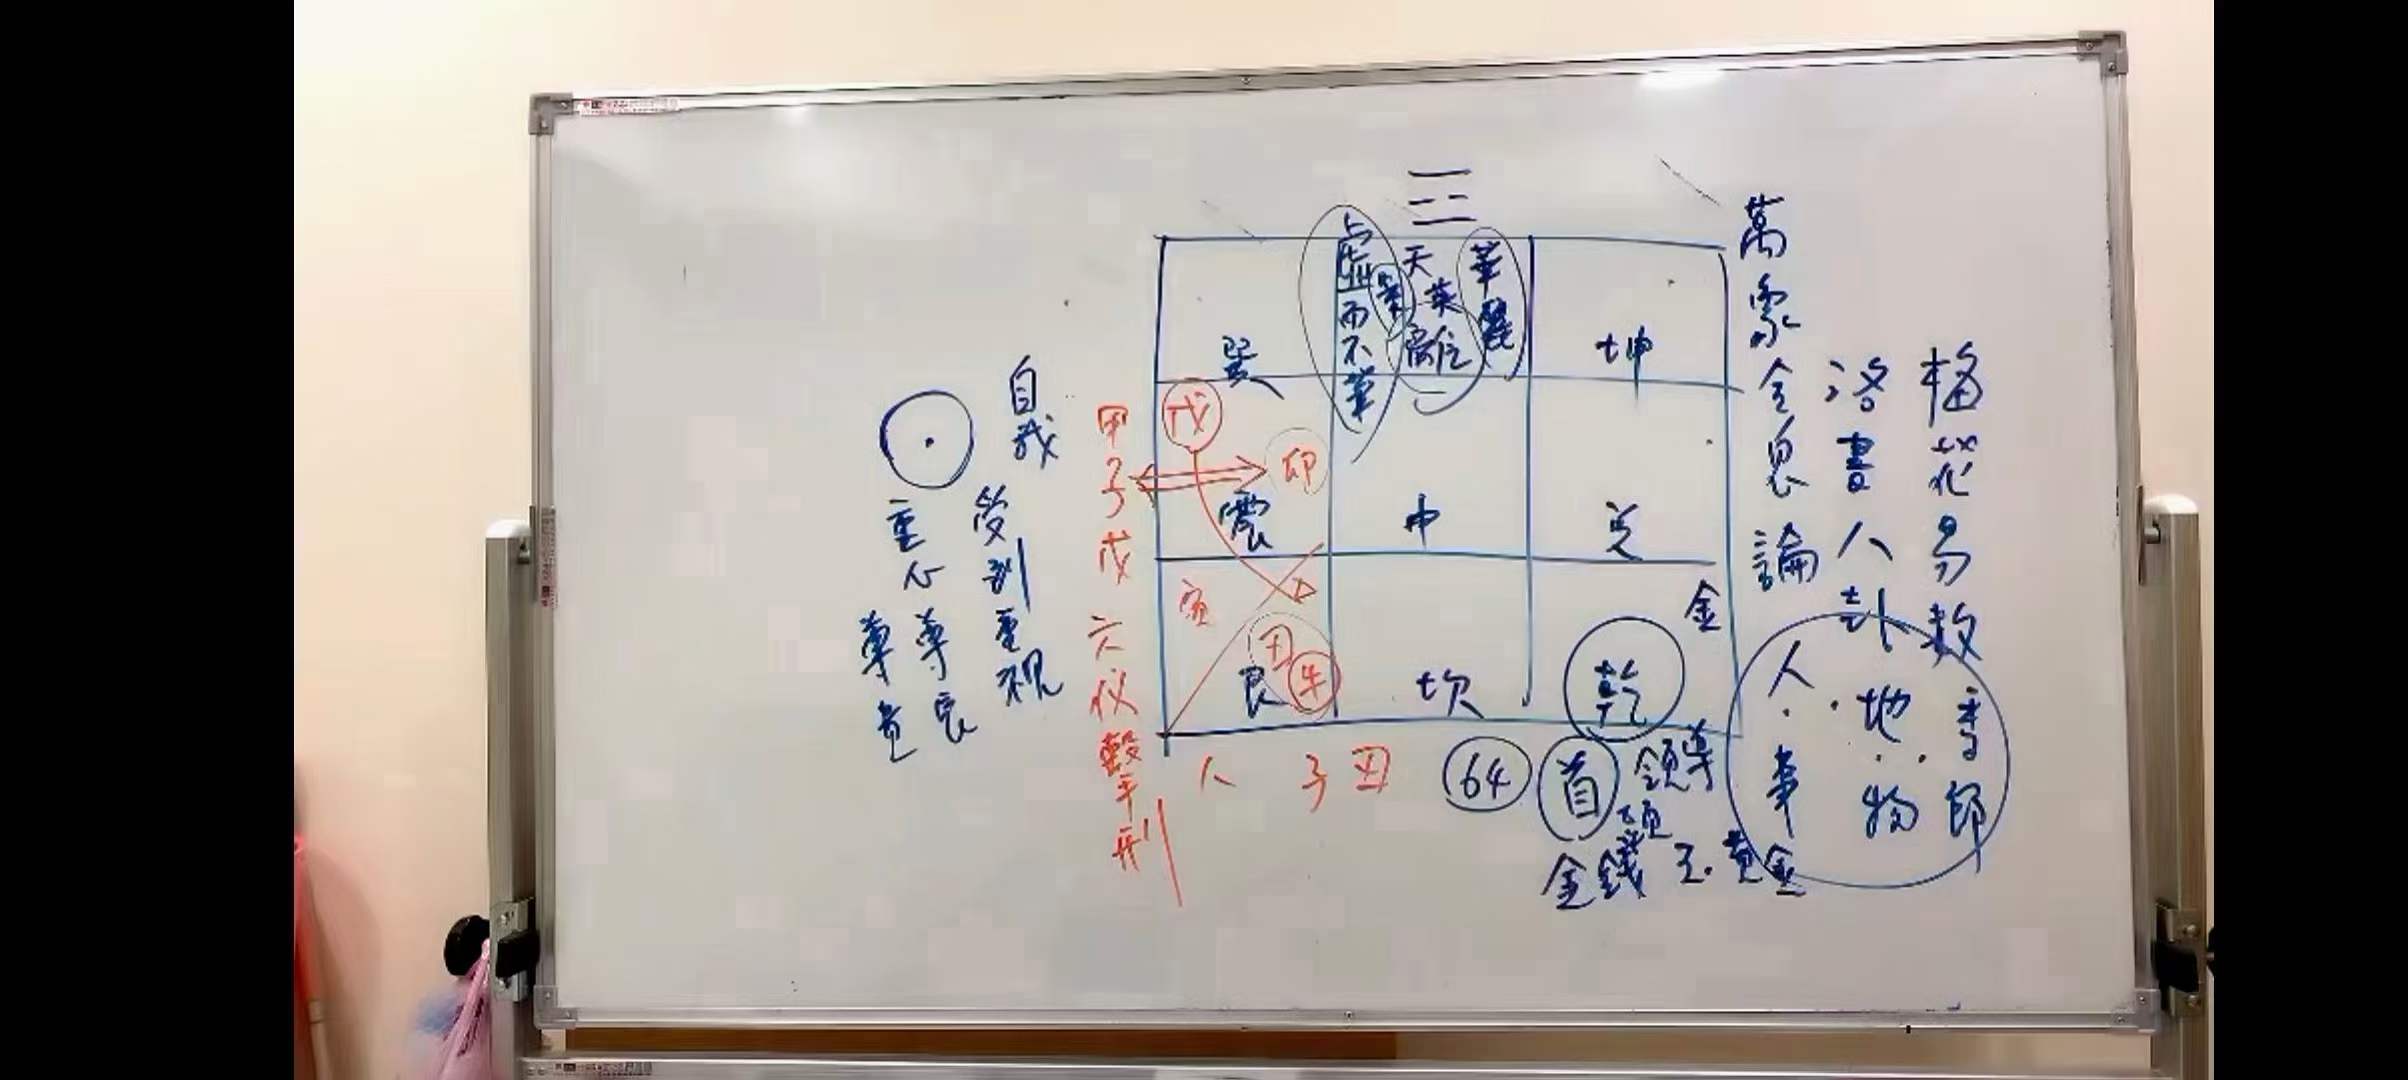 梅花易數
洛書人卦
萬象全息論
季節
地物
人事
☲
虛而不華
華麗
天英
離
巽
坤
戊
卯
震
中
兌
金
寅
丑
牛
艮
坎
乾
甲子戊六仪擊刑
人
子丑
64
首
領導
頭
金錢
玉
黃金
自我
受到重視
重心
尊長
尊貴